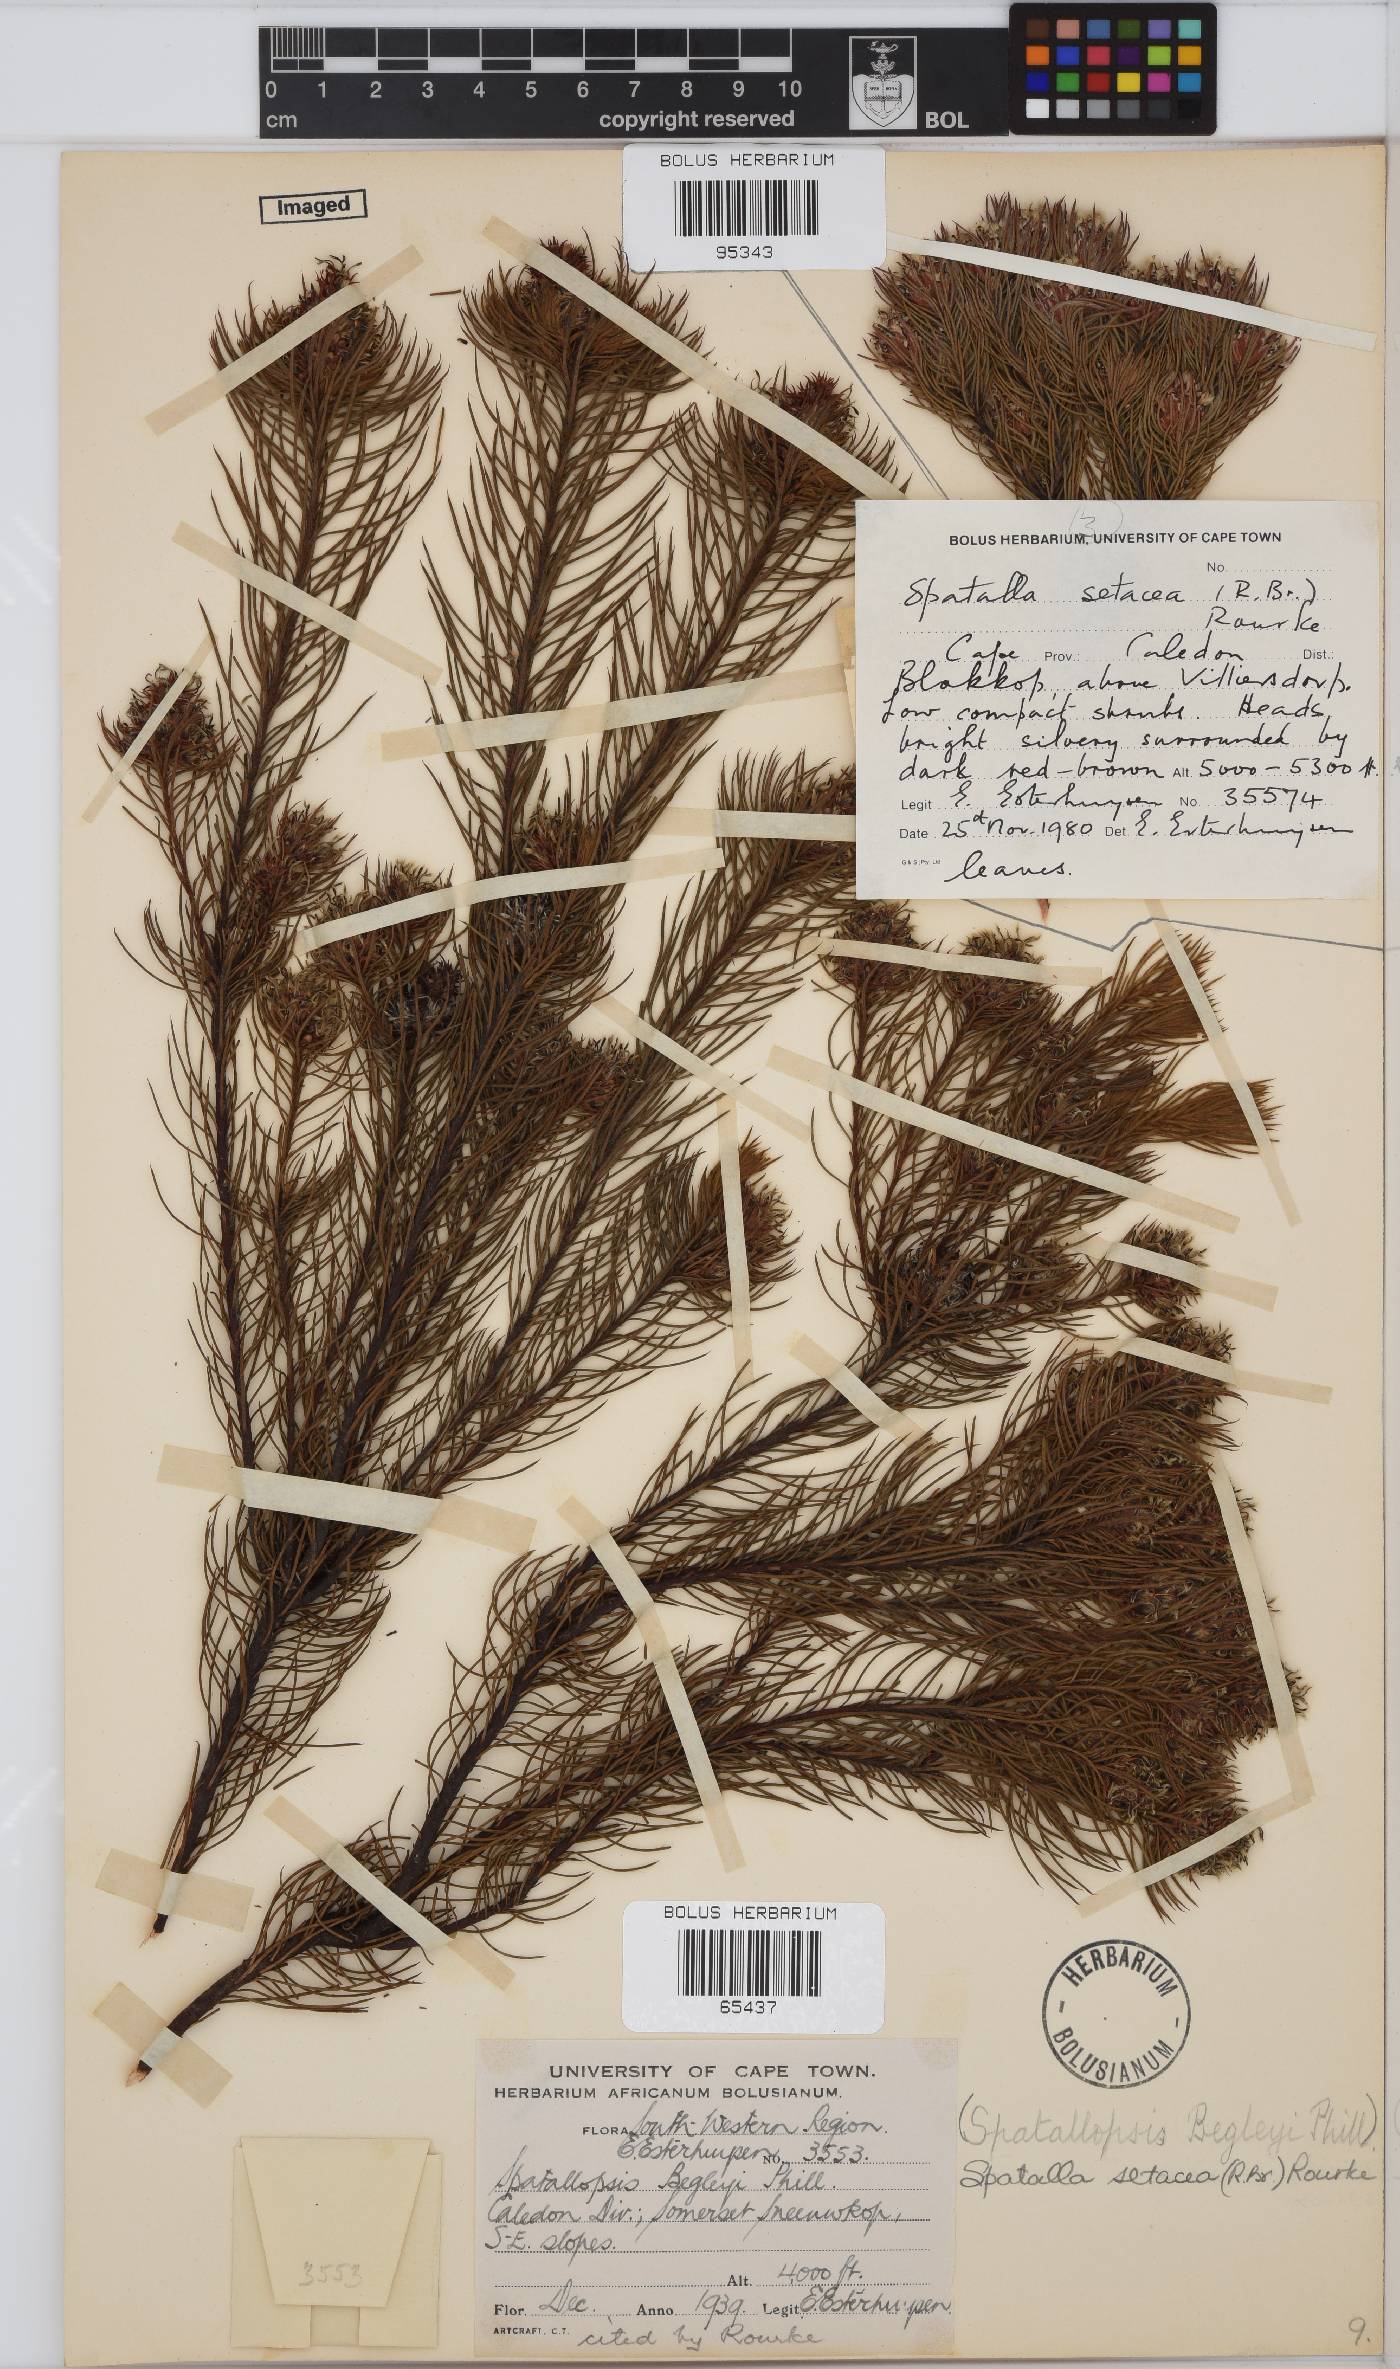 0 1 2 3 4 5 6 7 8 9 10
cm
copyright reserved
BOL
Imaged
BOLUS HERBARIUM
95343
(3)
BOLUS HERBARIUM, UNIVERSITY OF CAPE TOWN
No.
Spatalla setacea (R.Br.)
Rourke
Cape Prov.: Caledon Dist.:
Blokkop, above Villiersdorp.
Low compact shrubs. Heads
bright silvery surrounded by
dark red-brown Alt. 5000-5300 ft.
Legit E. Esterhuysen No. 35574
Date 25th Nov. 1980 Det. E. Esterhuysen
G & S (Pty) Ltd
leaves.
BOLUS HERBARIUM
65437
HERBARIUM
BOLUSIANUM
UNIVERSITY OF CAPE TOWN.
HERBARIUM AFRICANUM BOLUSIANUM.
FLORA South-Western Region.
E. Esterhuysen No. 3553.
Spatallopsis Begleyi Phill.
Caledon Div.; Somerset Sneeuwkop,
S-E. slopes.
Alt. 4,000 ft.
Flor. Dec. Anno 1939. Legit E. Esterhuysen.
ARTCRAFT, C.T.
cited by Rourke
(Spatallopsis Begleyi Phill)
Spatalla setacea (R.Br.) Rourke
3553
9.